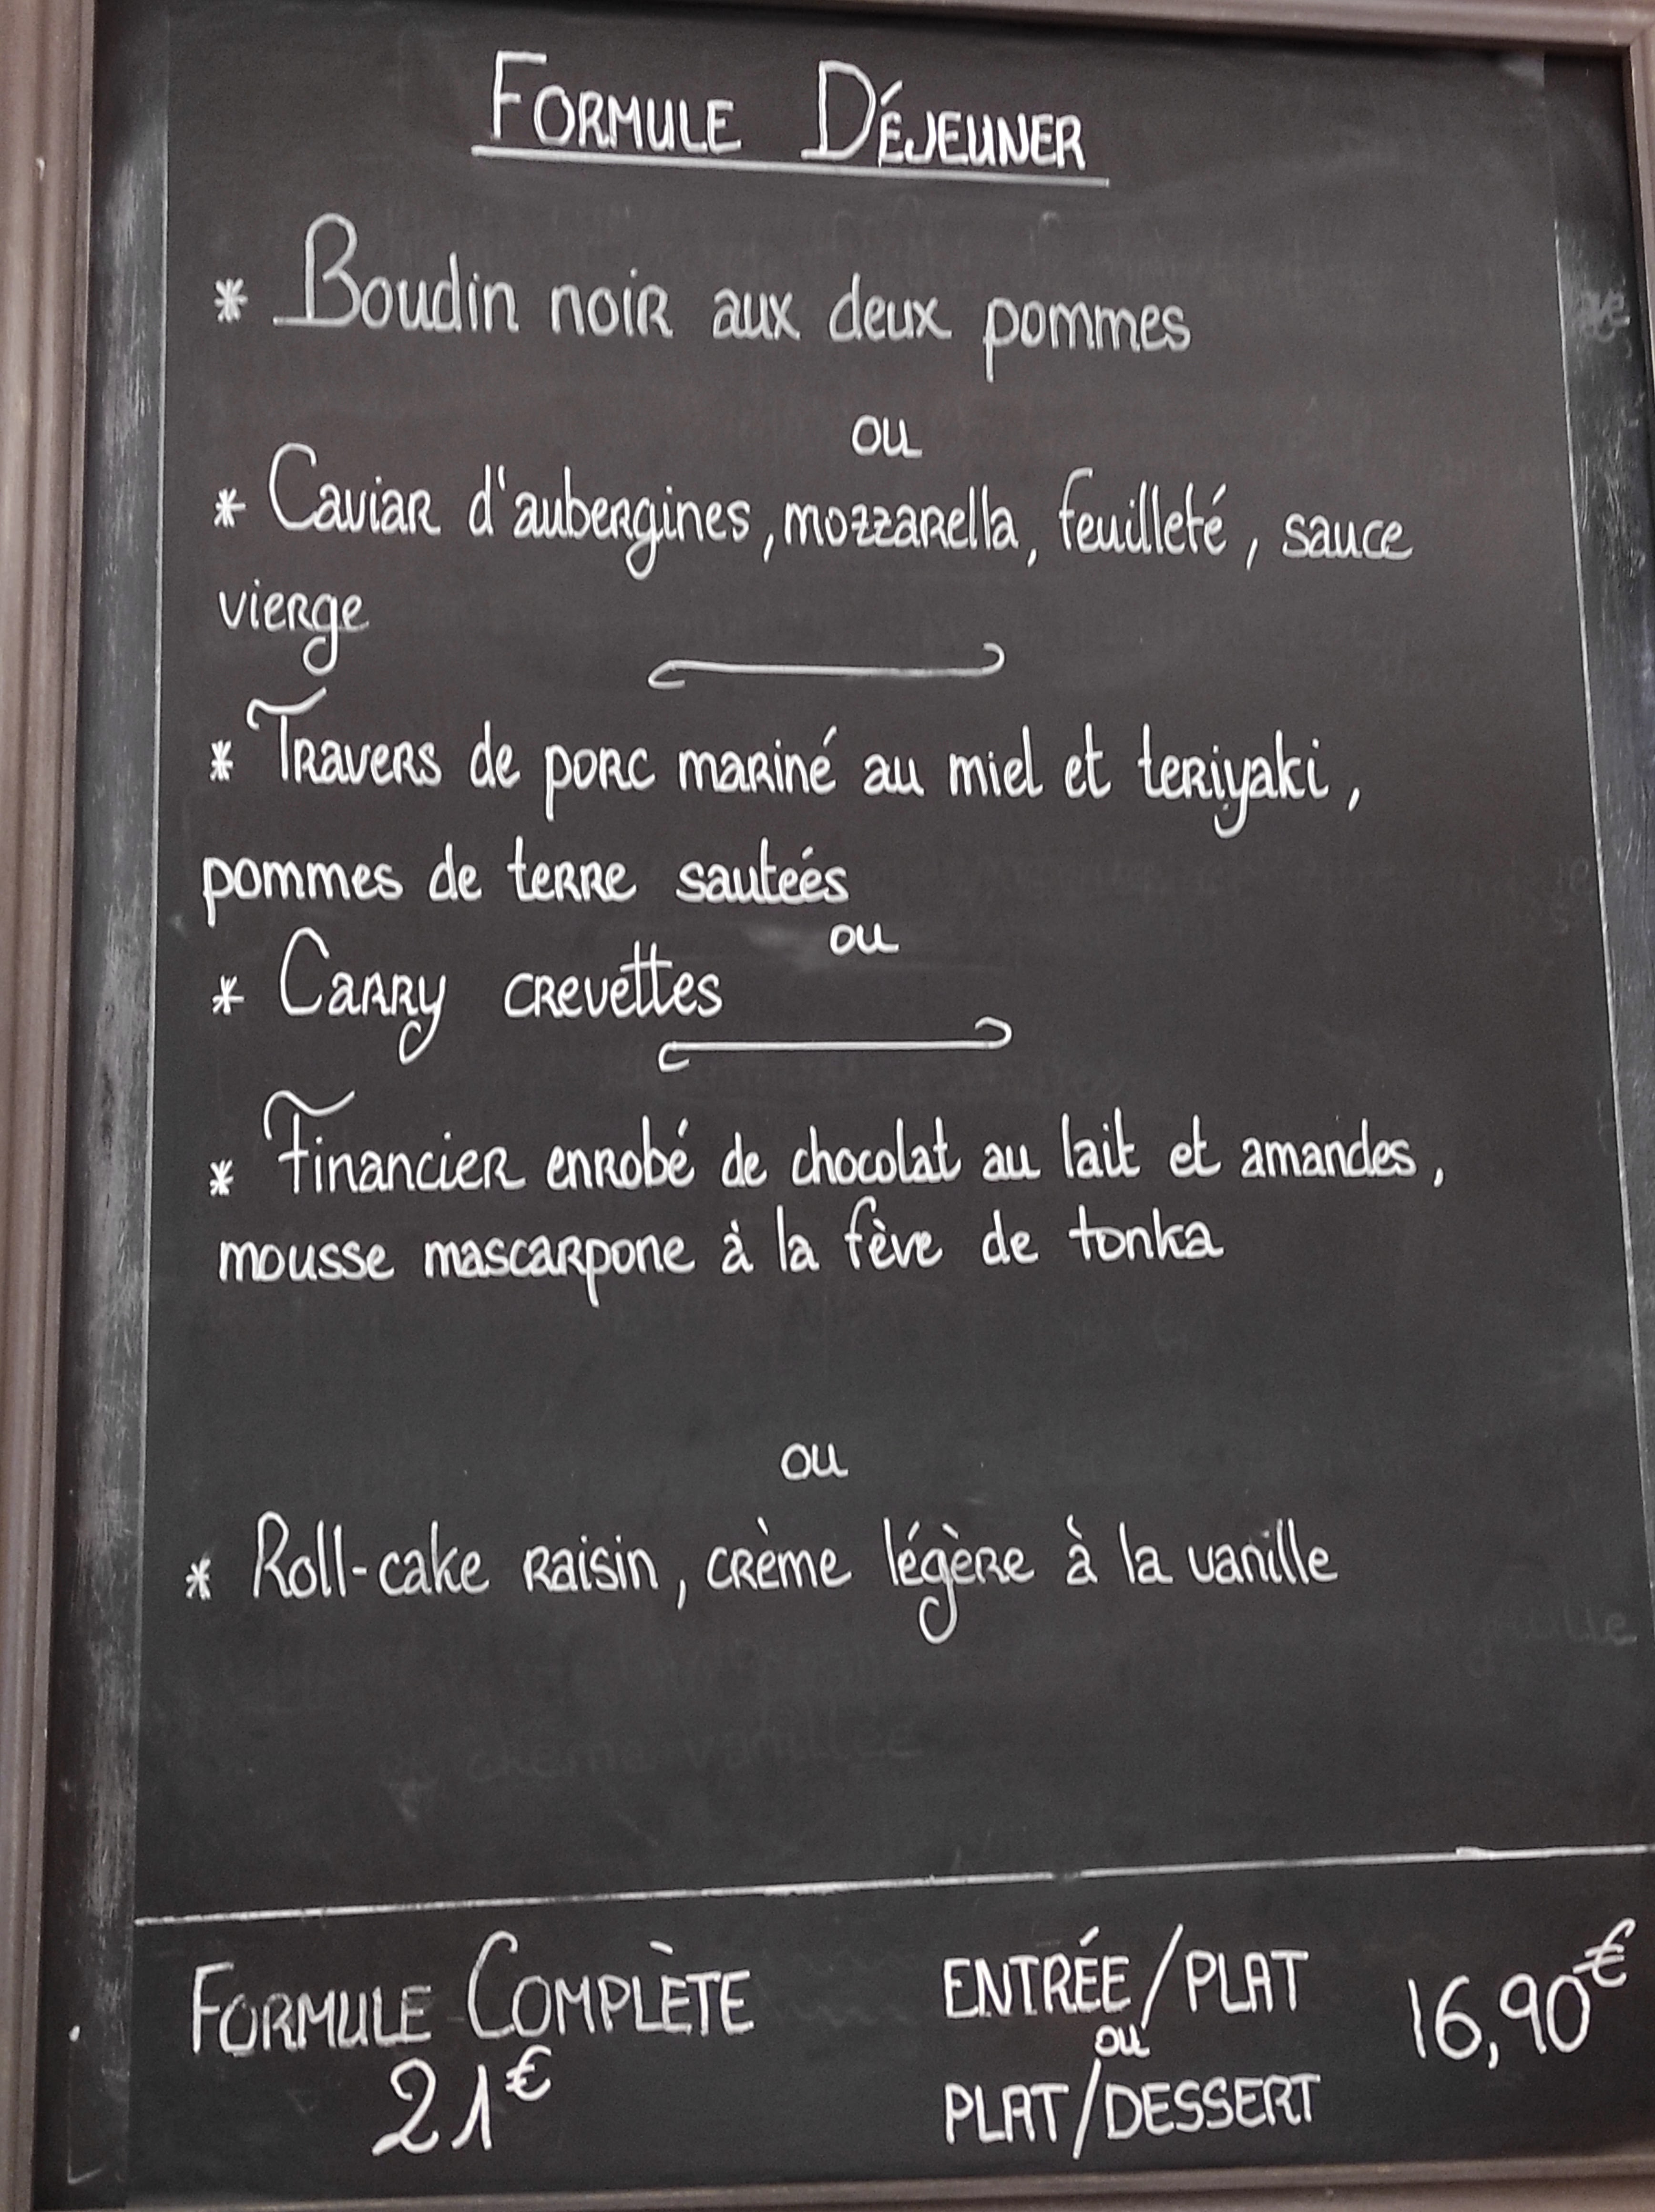 FORMULE DÉJEUNER
* Boudin noir aux deux pommes
ou
* Caviar d'aubergines, mozzarella, feuilleté, sauce
vierge
* Travers de porc mariné au miel et teriyaki,
pommes de terre sauteés
ou
* Carry crevettes
* Financier enrobé de chocolat au lait et amandes,
mousse mascarpone à la fève de tonka
ou
* Roll-cake raisin, crème légère à la vanille
FORMULE COMPLÈTE
21€
ENTRÉE/PLAT
ou
PLAT/DESSERT
16,90€